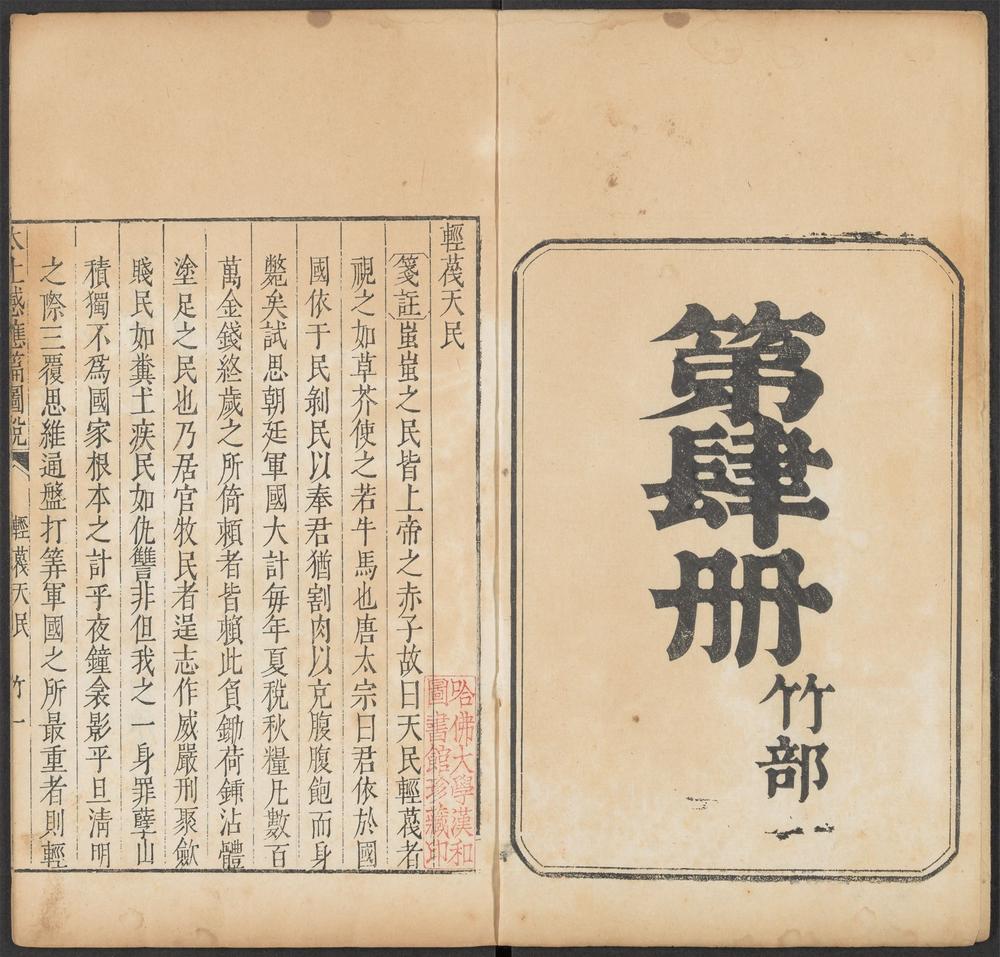 第肆册
竹部
輕蔑天民
箋註蚩蚩之民皆上帝之赤子故曰天民輕蔑者
視之如草芥使之若牛馬也唐太宗曰君依於國
國依于民剝民以奉君猶割肉以充腹腹飽而身
斃矣試思朝廷軍國大計每年夏稅秋糧凡數百
萬金錢終歲之所倚賴者皆賴此負鋤荷鍤沾體
塗足之民也乃居官牧民者逞志作威嚴刑聚歛
賤民如糞土疾民如仇讐非但我之一身罪孽山
積獨不爲國家根本之計乎夜鐘衾影平旦清明
之際三覆思維通盤打筭軍國之所最重者則輕
太上感應篇圖說 輕蔑天民 竹一
哈佛大學漢和
圖書館珍藏印